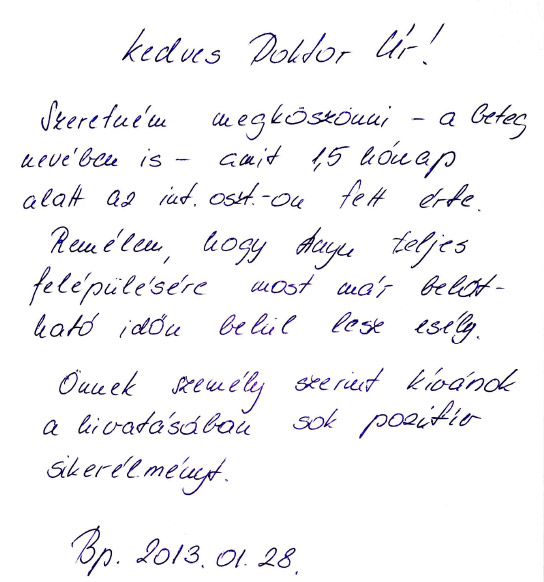 Kedves Doktor Úr!
Szeretném megköszönni - a beteg
nevében is - amit 1,5 hónap
alatt az int. oszt.-on tett érte.
Remélem, hogy Anyu teljes
felépülésére most már belát-
ható időn belül lesz esély.
Önnek személy szerint kívánok
a hivatásában sok pozitív
sikerélményt.
Bp. 2013. 01. 28.